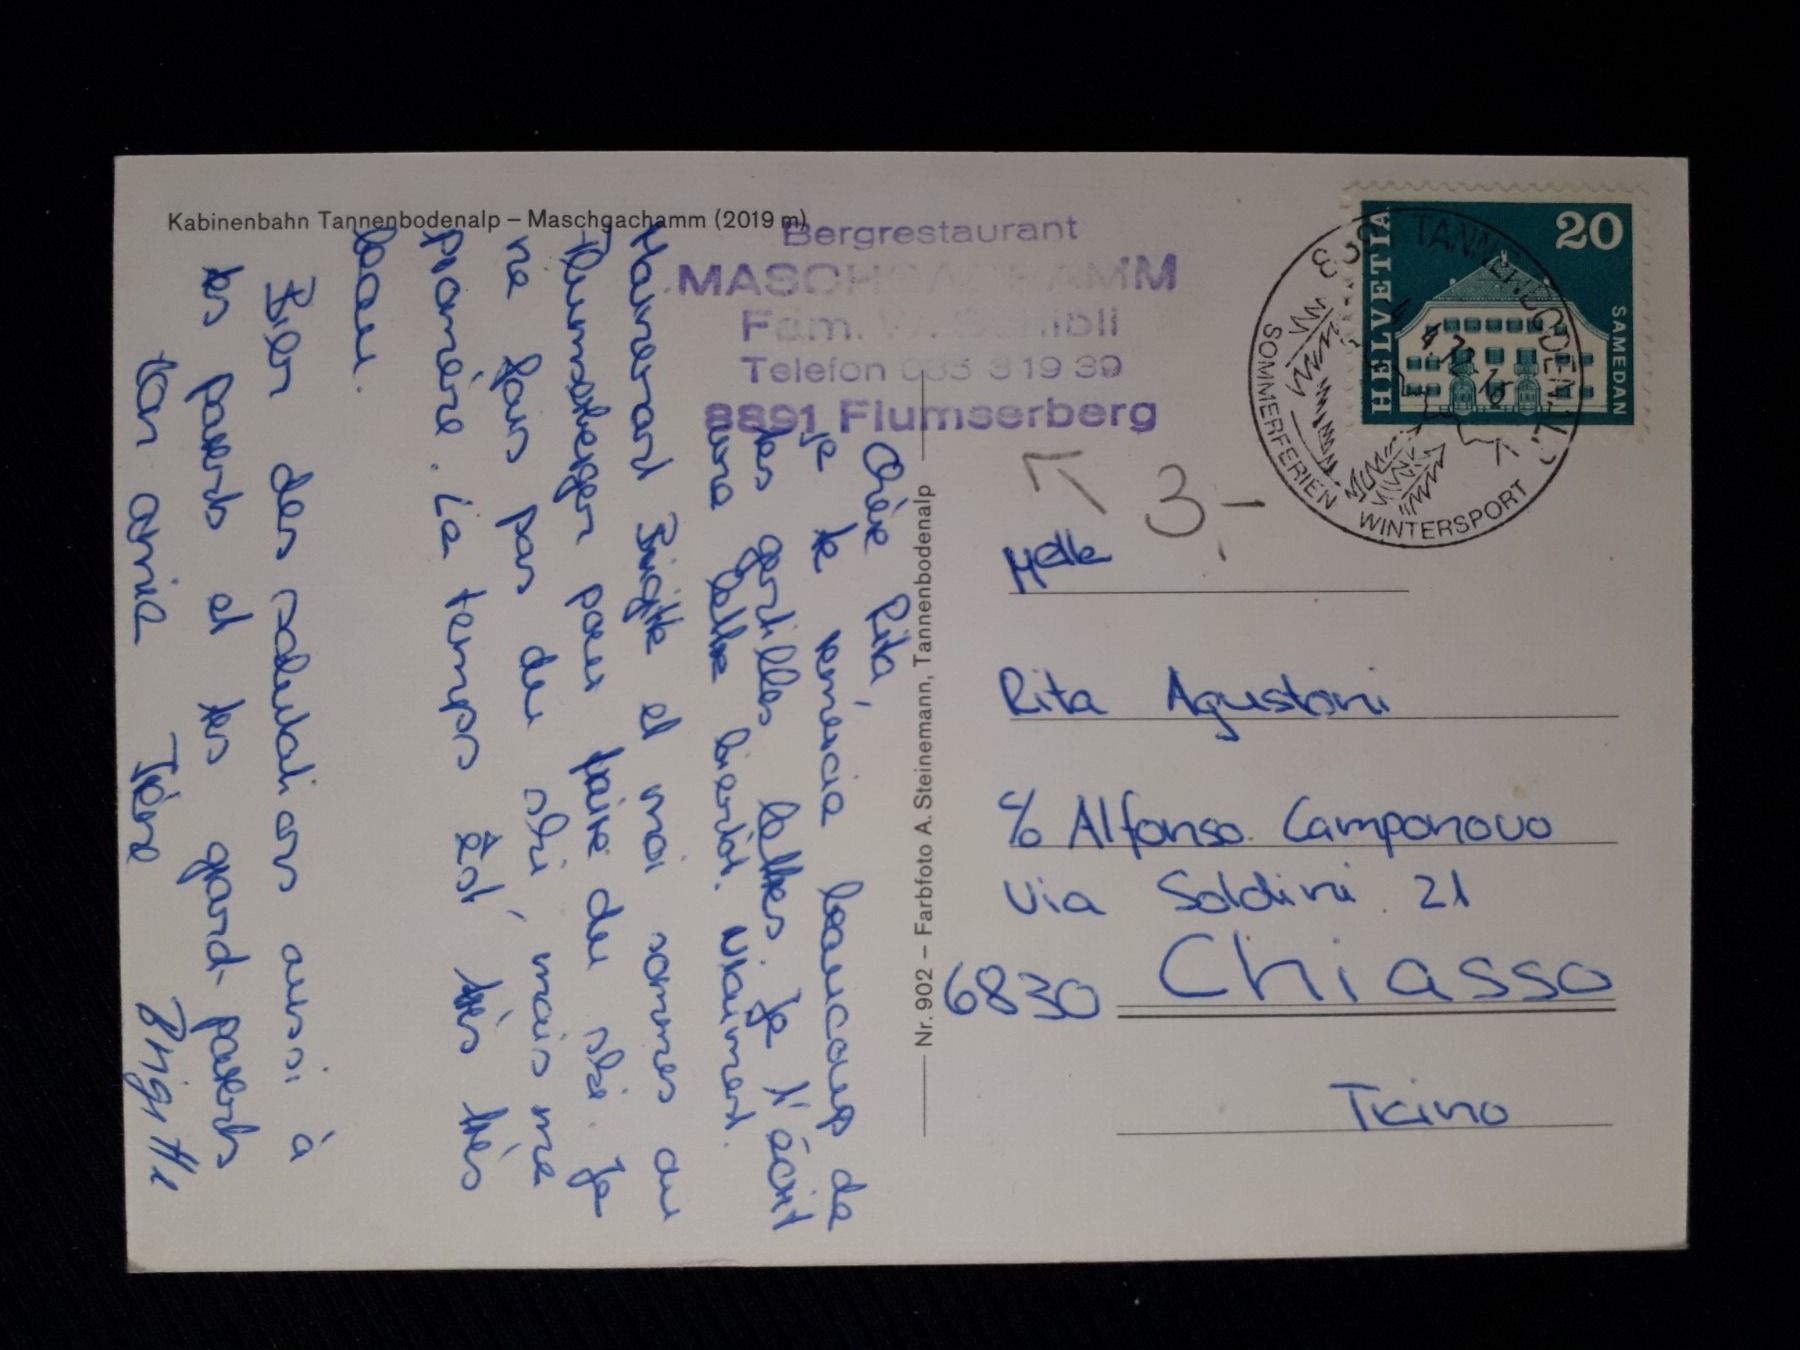 Kabinenbahn Tannenbodenalp – Maschgachamm (2019 m)
Bergrestaurant
MASCHGACHAMM
Fam. W. Schibli
Telefon 085 3 19 39
8891 Flumserberg
HELVETIA
20
SAMEDAN
TANNENBODENALP
SOMMERFERIEN WINTERSPORT
3,–
Chère Rita,
je te remércie beaucoup de
tes gentilles lettres. Je t'écrit
une lettre bientôt.
Maintenant Brigitte et moi sommes au
Flumserberger pour faire du ski. Je
ne fais pas du ski, mais me
promène. Le temps êst très très
beau.
Bien des salutations aussi à
tes parents et tes grand-parents
ton amie Brigitte
Nr. 902 – Farbfoto A. Steinemann, Tannenbodenalp
Melle
Rita Agustoni
c/o Alfonso Camponovo
Via Soldini 21
6830 Chiasso
Ticino